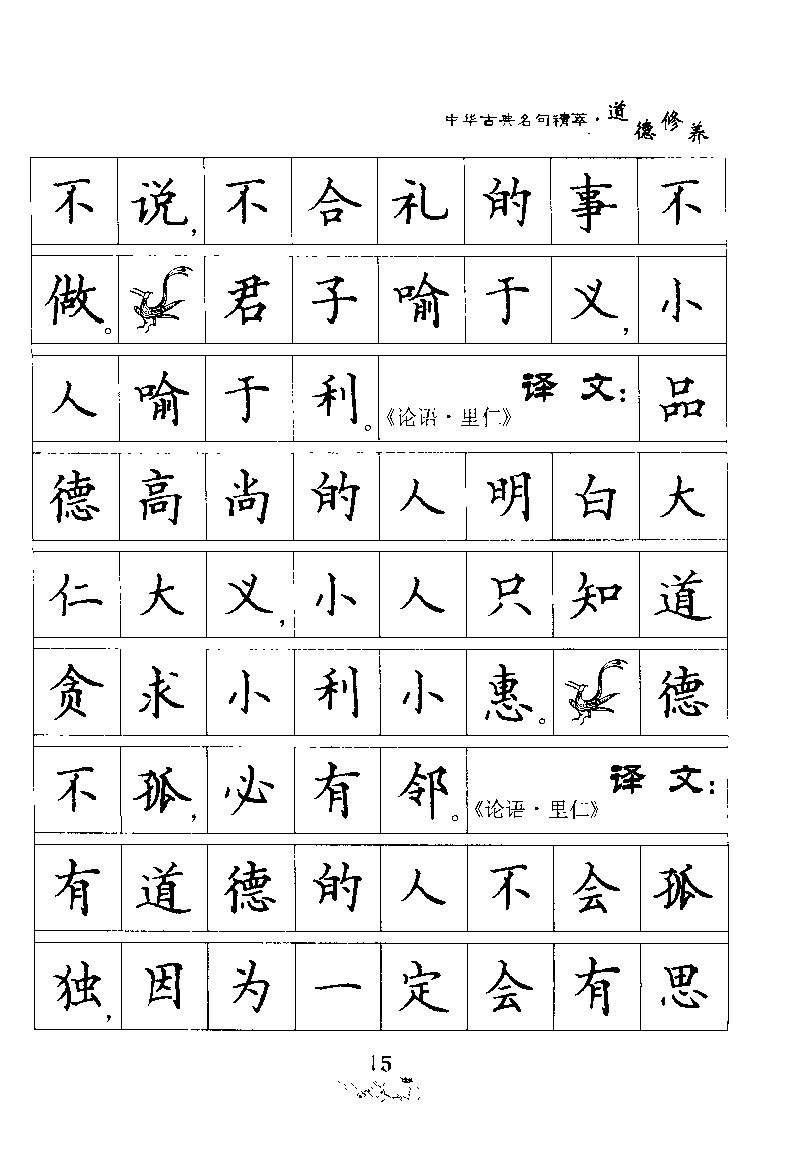 中华古典名句精萃·道德修养
不说,不合礼的事不
做。君子喻于义,小
人喻于利。《论语·里仁》译文:品
德高尚的人明白大
仁大义,小人只知道
贪求小利小惠。德
不孤,必有邻。《论语·里仁》译文:
有道德的人不会孤
独,因为一定会有思
15